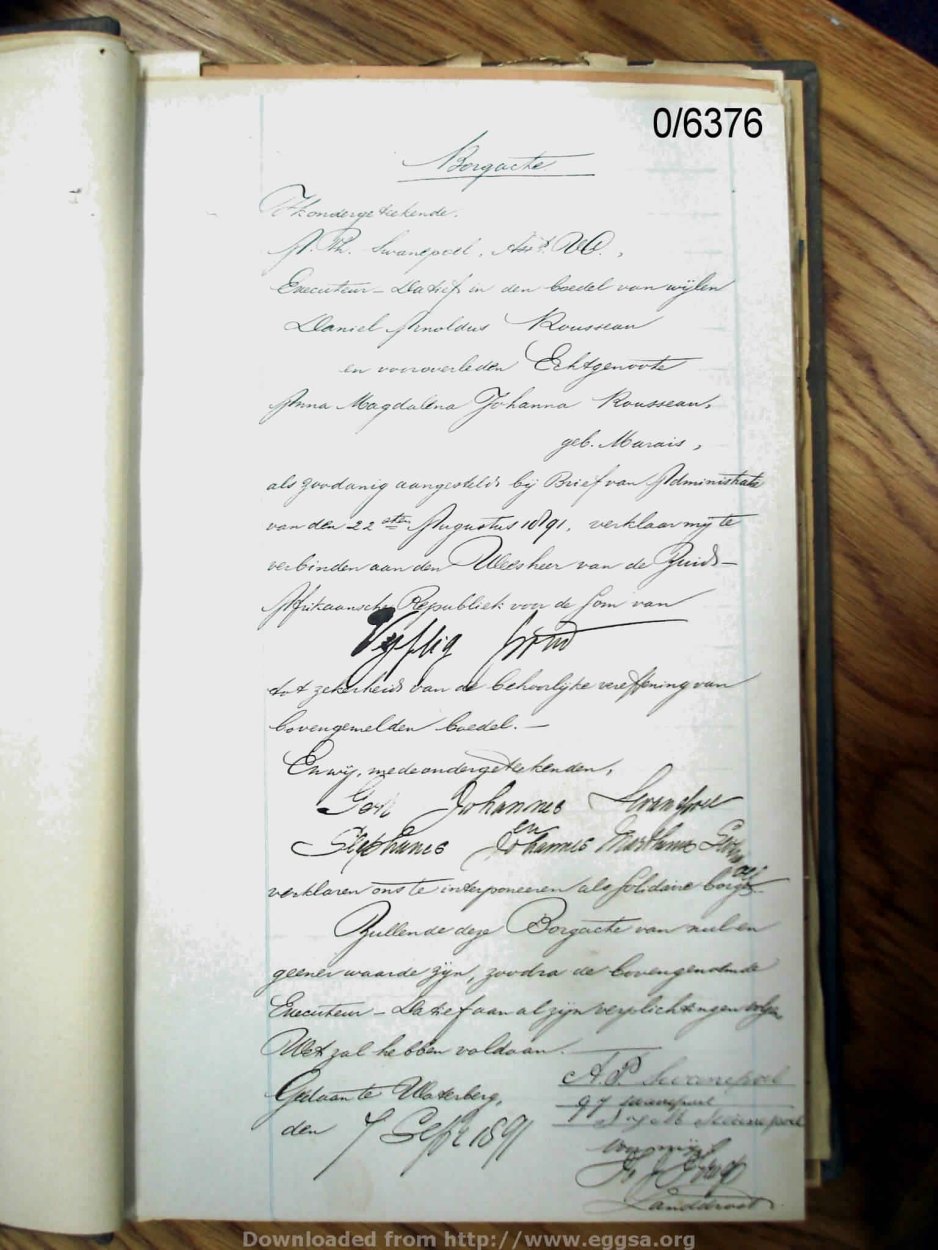 0/6376
Borgacte
Ik ondergeteekende.
A. Th. Swanepoel,
Executeur-Datief in den boedel van wijlen
Daniel Arnoldus Rousseau
en vooroverleden Echtgenoote
Anna Magdalena Johanna Rousseau,
geb. Marais,
als zoodanig aangesteld bij Brief van Administratie
van den 22sten Augustus 1891, verklaar mij te
verbinden aan den Weesheer van de Zuid-
Afrikaansche Republiek voor de som van
Vyftig Pond
tot zekerheid van de behoorlijke vereffening van
bovengemelden boedel.-
En wij, medeondergeteekenden,
Johannes Swanepoel
en
Stephanus Johannes Marthinus
verklaren ons te interponeeren als solidaire borgen
Zullende deze Borgacte van nul en
geener waarde zijn, zoodra de bovengenoemde
Executeur-Datief aan al zijn verplichtingen volgens
Wet zal hebben voldaan.
Gedaan te Waterberg,
den 7 Sept 1891
A.P. Swanepoel
Swanepoel
Swanepoel
Voor mij
Landdrost
Downloaded from http://www.eggsa.org